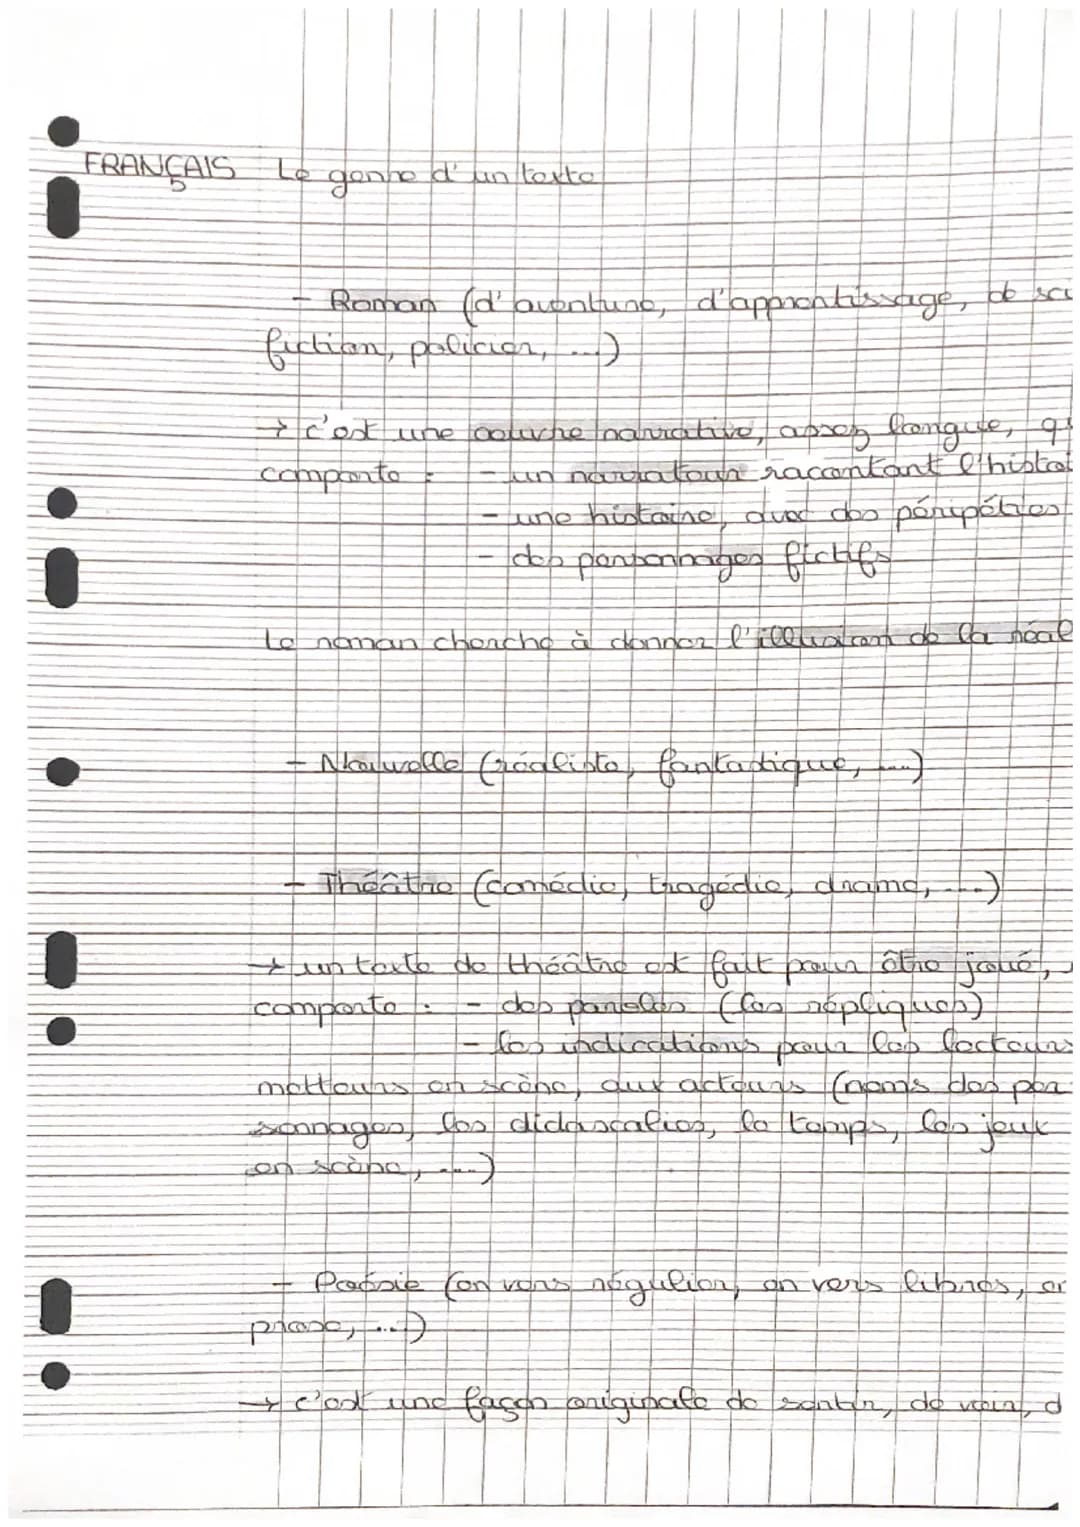 FRANÇAIS Le genre d'un texte
- Roman (d'aventure, d'apprentissage, de sci
fiction, policier, ...)
→ c'est une œuvre narrative, assez longue, qu
comporte : - un narrateur racontant l'histoi
- une histoire, avec des péripéties
- des personnages fictifs
Le roman cherche à donner l'illusion de la réal
- Nouvelle (réaliste, fantastique, ...)
- Théâtre (comédie, tragédie, drame, ...)
→ un texte de théâtre est fait pour être joué,
comporte : - des paroles (les répliques)
- les indications pour les lecteurs
metteurs en scène, aux acteurs (noms des per
sonnages, les didascalies, le temps, les jeux
en scène, ...)
- Poésie (en vers régulier, en vers libres, en
prose, ...)
→ c'est une façon originale de sentir, de voir, d